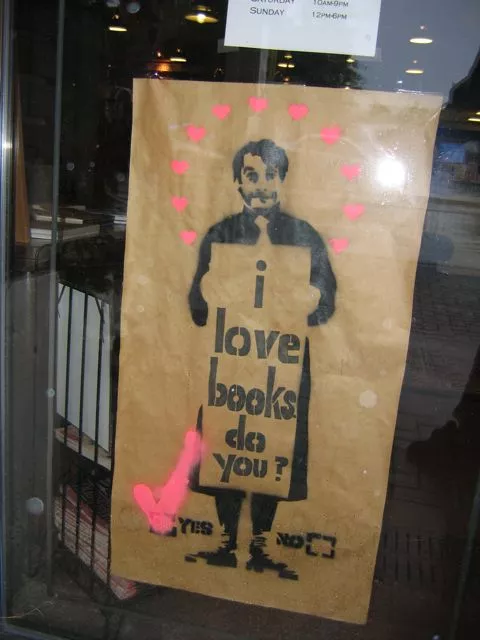 SATURDAY 10AM-9PM
SUNDAY 12PM-6PM
i
love
books.
do
you?
YES NO